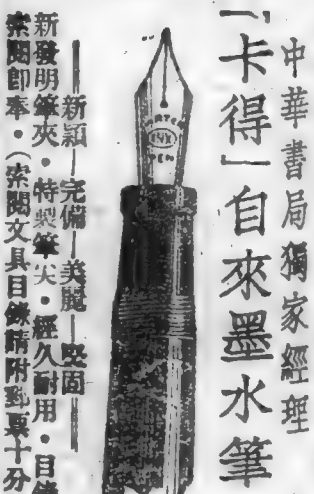 中華書局獨家經理
「卡得」自來墨水筆
新穎—完備—美麗—堅固
新發明筆夾・特製筆尖・經久耐用・目錄
索閱即奉・(索閱文具目錄請附郵票十分
14K
PEN